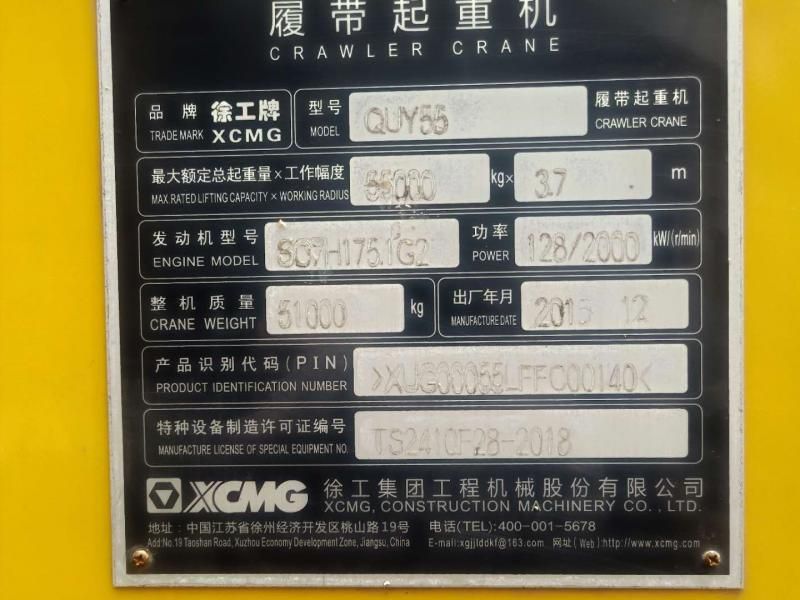 履带起重机
CRAWLER CRANE
品牌 徐工牌 型号 QUY55 履带起重机
TRADE MARK XCMG MODEL CRAWLER CRANE
最大额定总起重量×工作幅度 55000 kg× 3.7 m
MAX.RATED LIFTING CAPACITY × WORKING RADIUS
发动机型号 SC7H175.1G2 功率 128/2000 kW/(r/min)
ENGINE MODEL POWER
整机质量 51000 kg 出厂年月 12
CRANE WEIGHT MANUFACTURE DATE
产品识别代码(PIN)
PRODUCT IDENTIFICATION NUMBER
特种设备制造许可证编号 TS2410F28-2018
MANUFACTURE LICENSE OF SPECIAL EQUIPMENT NO.
XCMG 徐工集团工程机械股份有限公司
XCMG, CONSTRUCTION MACHINERY CO., LTD.
地址: 中国江苏省徐州经济开发区桃山路19号 电话(TEL):400-001-5678
Add:No.19 Taoshan Road, Xuzhou Economy Development Zone, Jiangsu, China E-mail:xgjjlddkf@163.com 网址(Web):http://www.xcmg.com